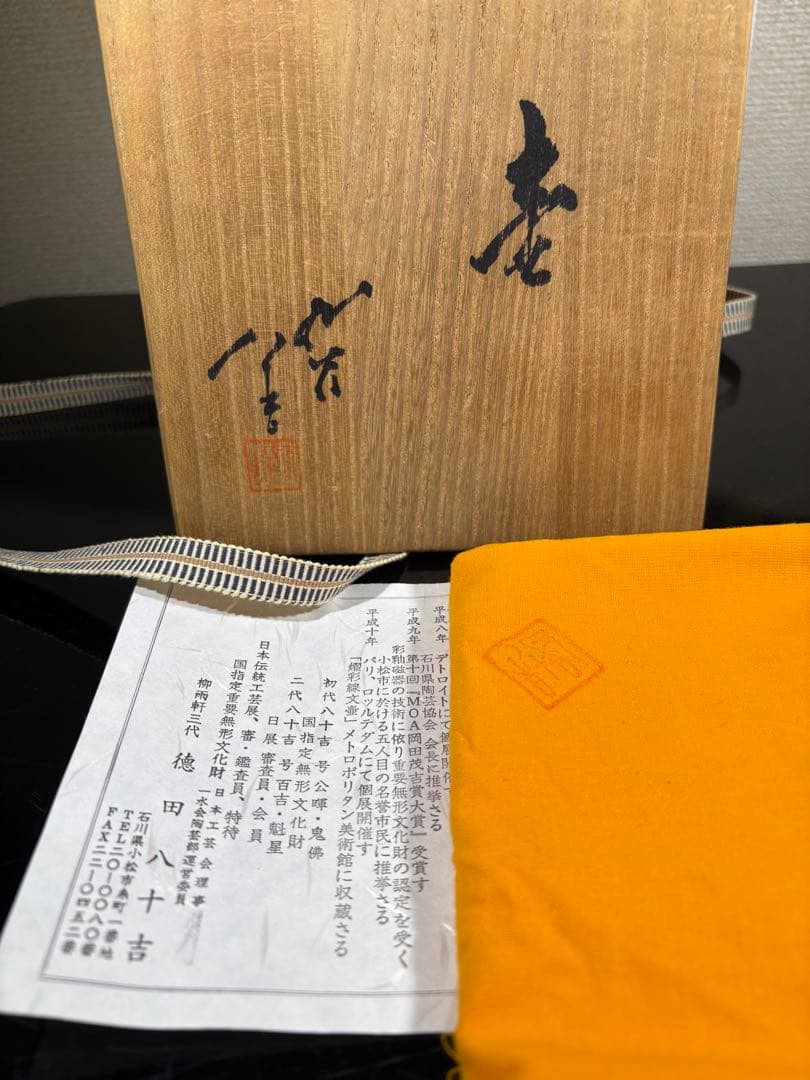 壷
平成八年 デトロイトにて個展開催
石川県陶芸協会 会長に推挙さる
平成九年 第十回『MOA岡田茂吉賞大賞』受賞す
彩釉磁器の技術に依り重要無形文化財の認定を受く
小松市に於ける五人目の名誉市民に推挙さる
平成十年 パリ、ロッテルダムにて個展開催す
「燿彩線文壷」メトロポリタン美術館に収蔵さる
初代八十吉 号 公暉・鬼佛
国指定無形文化財
二代八十吉 号 百吉・魁星
日展 審査員・会員
日本伝統工芸展、審・鑑査員、特待
国指定重要無形文化財 日本工芸会理事
一水会陶芸部運営委員
柳雨軒三代 徳田八十吉
石川県小松市
TEL二〇-〇〇八〇番
FAX二二-〇四五二番